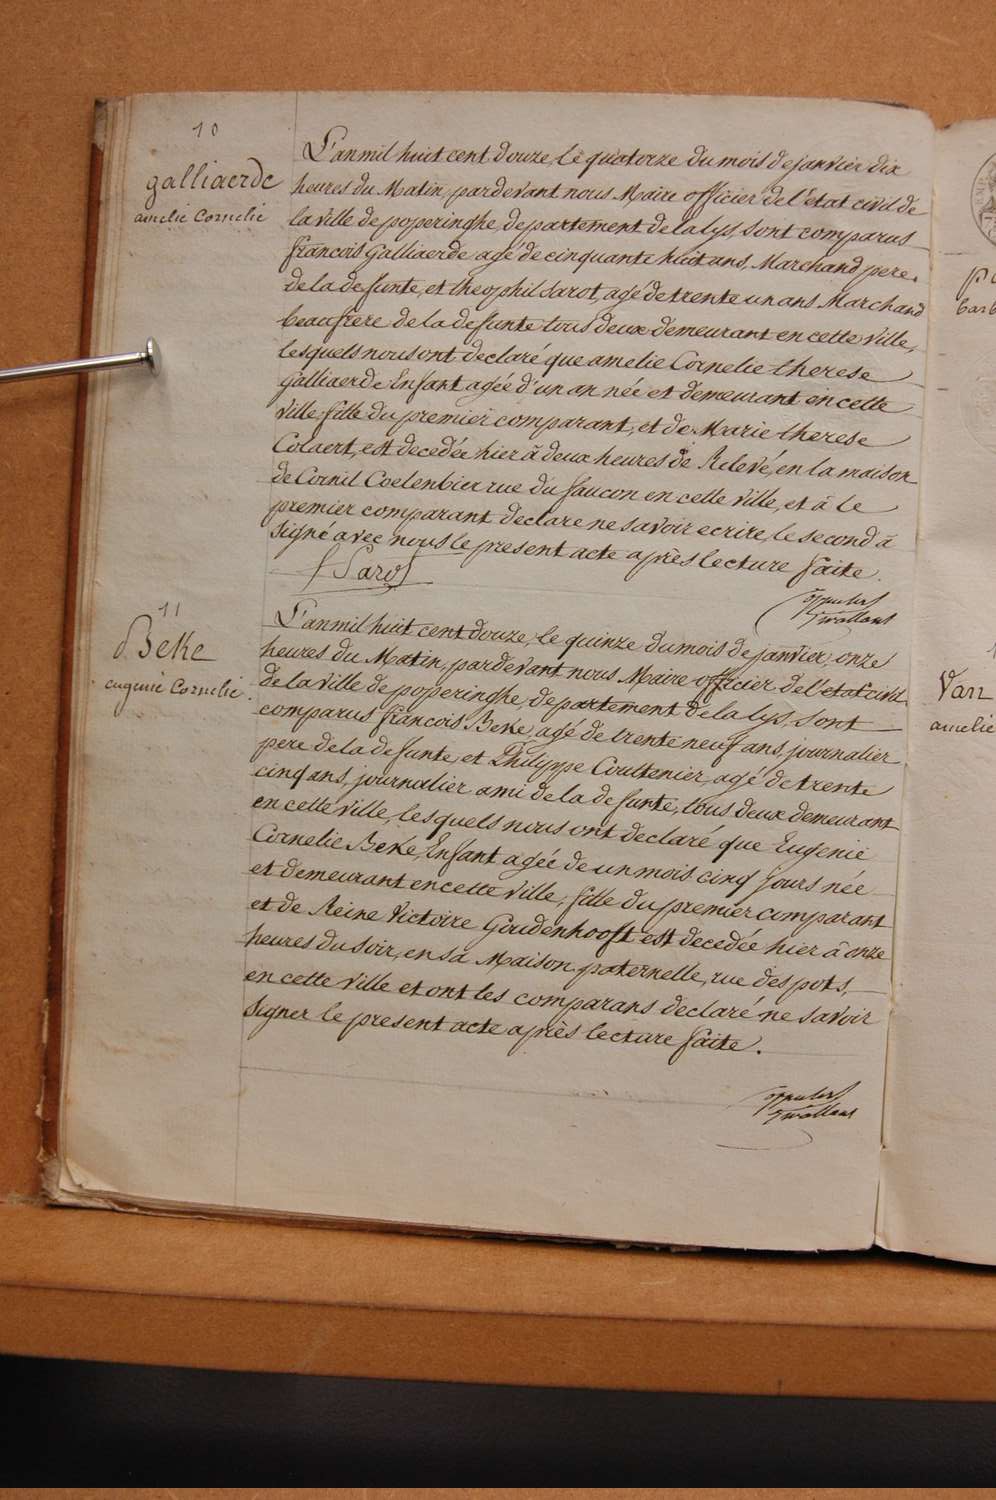 10
galliaerde
amelie Cornelie
L'an mil huit cent douze, le quatorze du mois de janvier dix
heures du Matin, pardevant nous Maire officier de l'état civil de
la ville de poperinghe, departement de la lys, sont comparus
francois Galliaerde agé de cinquante huit ans, Marchand pere
de la defunte, et theophil sarot, agé de trente un ans Marchand
beaufrere de la defunte tous deux demeurant en cette ville,
lesquels nous ont declaré que amelie Cornelie therese
Galliaerde Enfant agée d'un an née et demeurant en cette
ville fille du premier comparant, et de Marie therese
Colaert, est decedée hier à deux heures de Relevé, en la maison
de Cornil Coelenbier rue du faucon en cette ville, et à le
premier comparant declare ne savoir ecrire, le second à
signé avec nous le present acte après lecture faite.
Sarot
11
Beke
eugenie Cornelie
L'an mil huit cent douze, le quinze du mois de janvier, onze
heures du Matin, pardevant nous Maire officier de l'etat civil
de la ville de poperinghe, departement de la lys, sont
comparus francois Beke, agé de trente neuf ans, journalier
pere de la defunte, et Philippe Couttenier, agé de trente
cinq ans, journalier ami de la defunte, tous deux demeurant
en cette ville, lesquels nous ont declaré que Eugenie
Cornelie Beke, Enfant agée de un mois cinq jours née
et demeurant en cette ville, fille du premier comparant
et de Reine Victoire Goudenhooft est decedée hier à onze
heures du soir, en sa Maison paternelle, rue des pots,
en cette ville et ont les comparans declaré ne savoir
signer le present acte après lecture faite.
Van
amelie